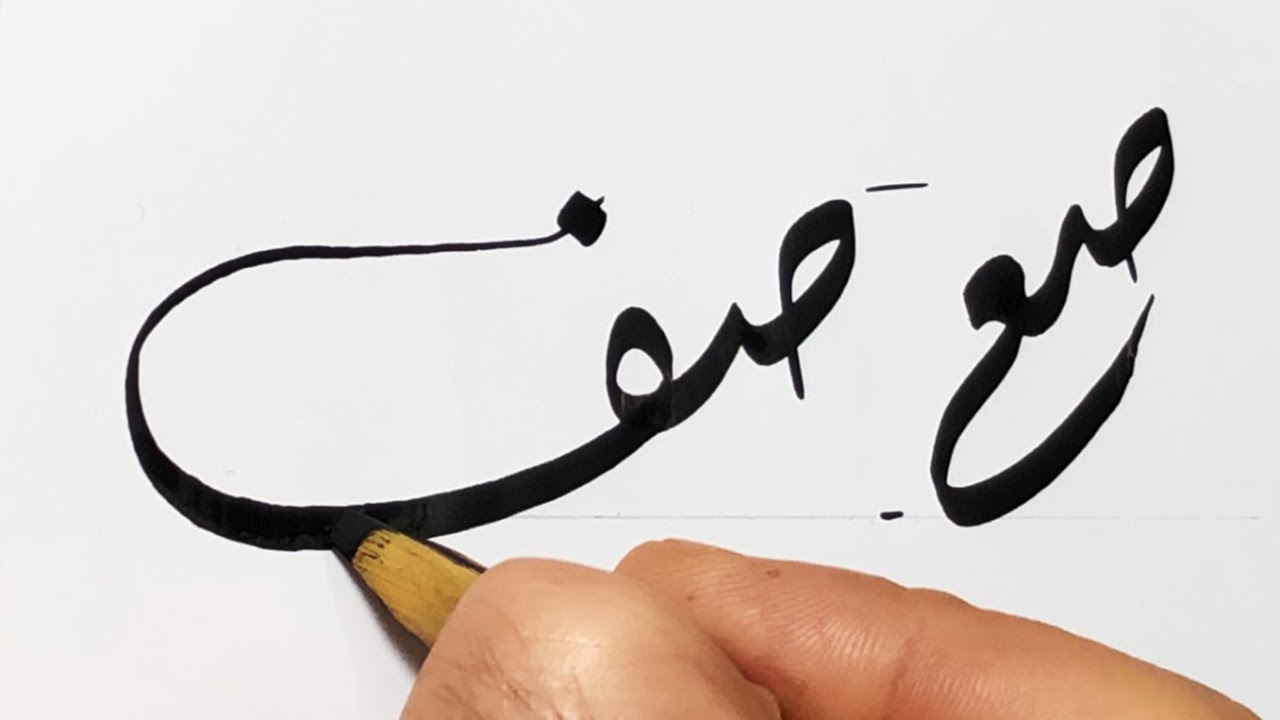 صع صف